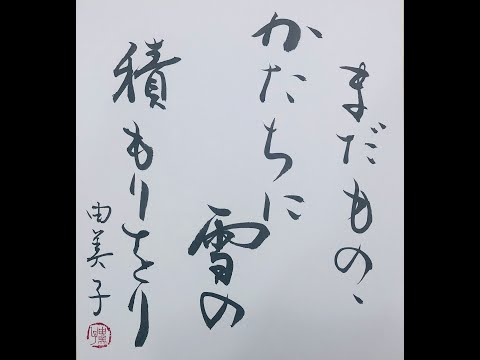 まだものゝ
かたちに
雪の
積もりをり
由美子